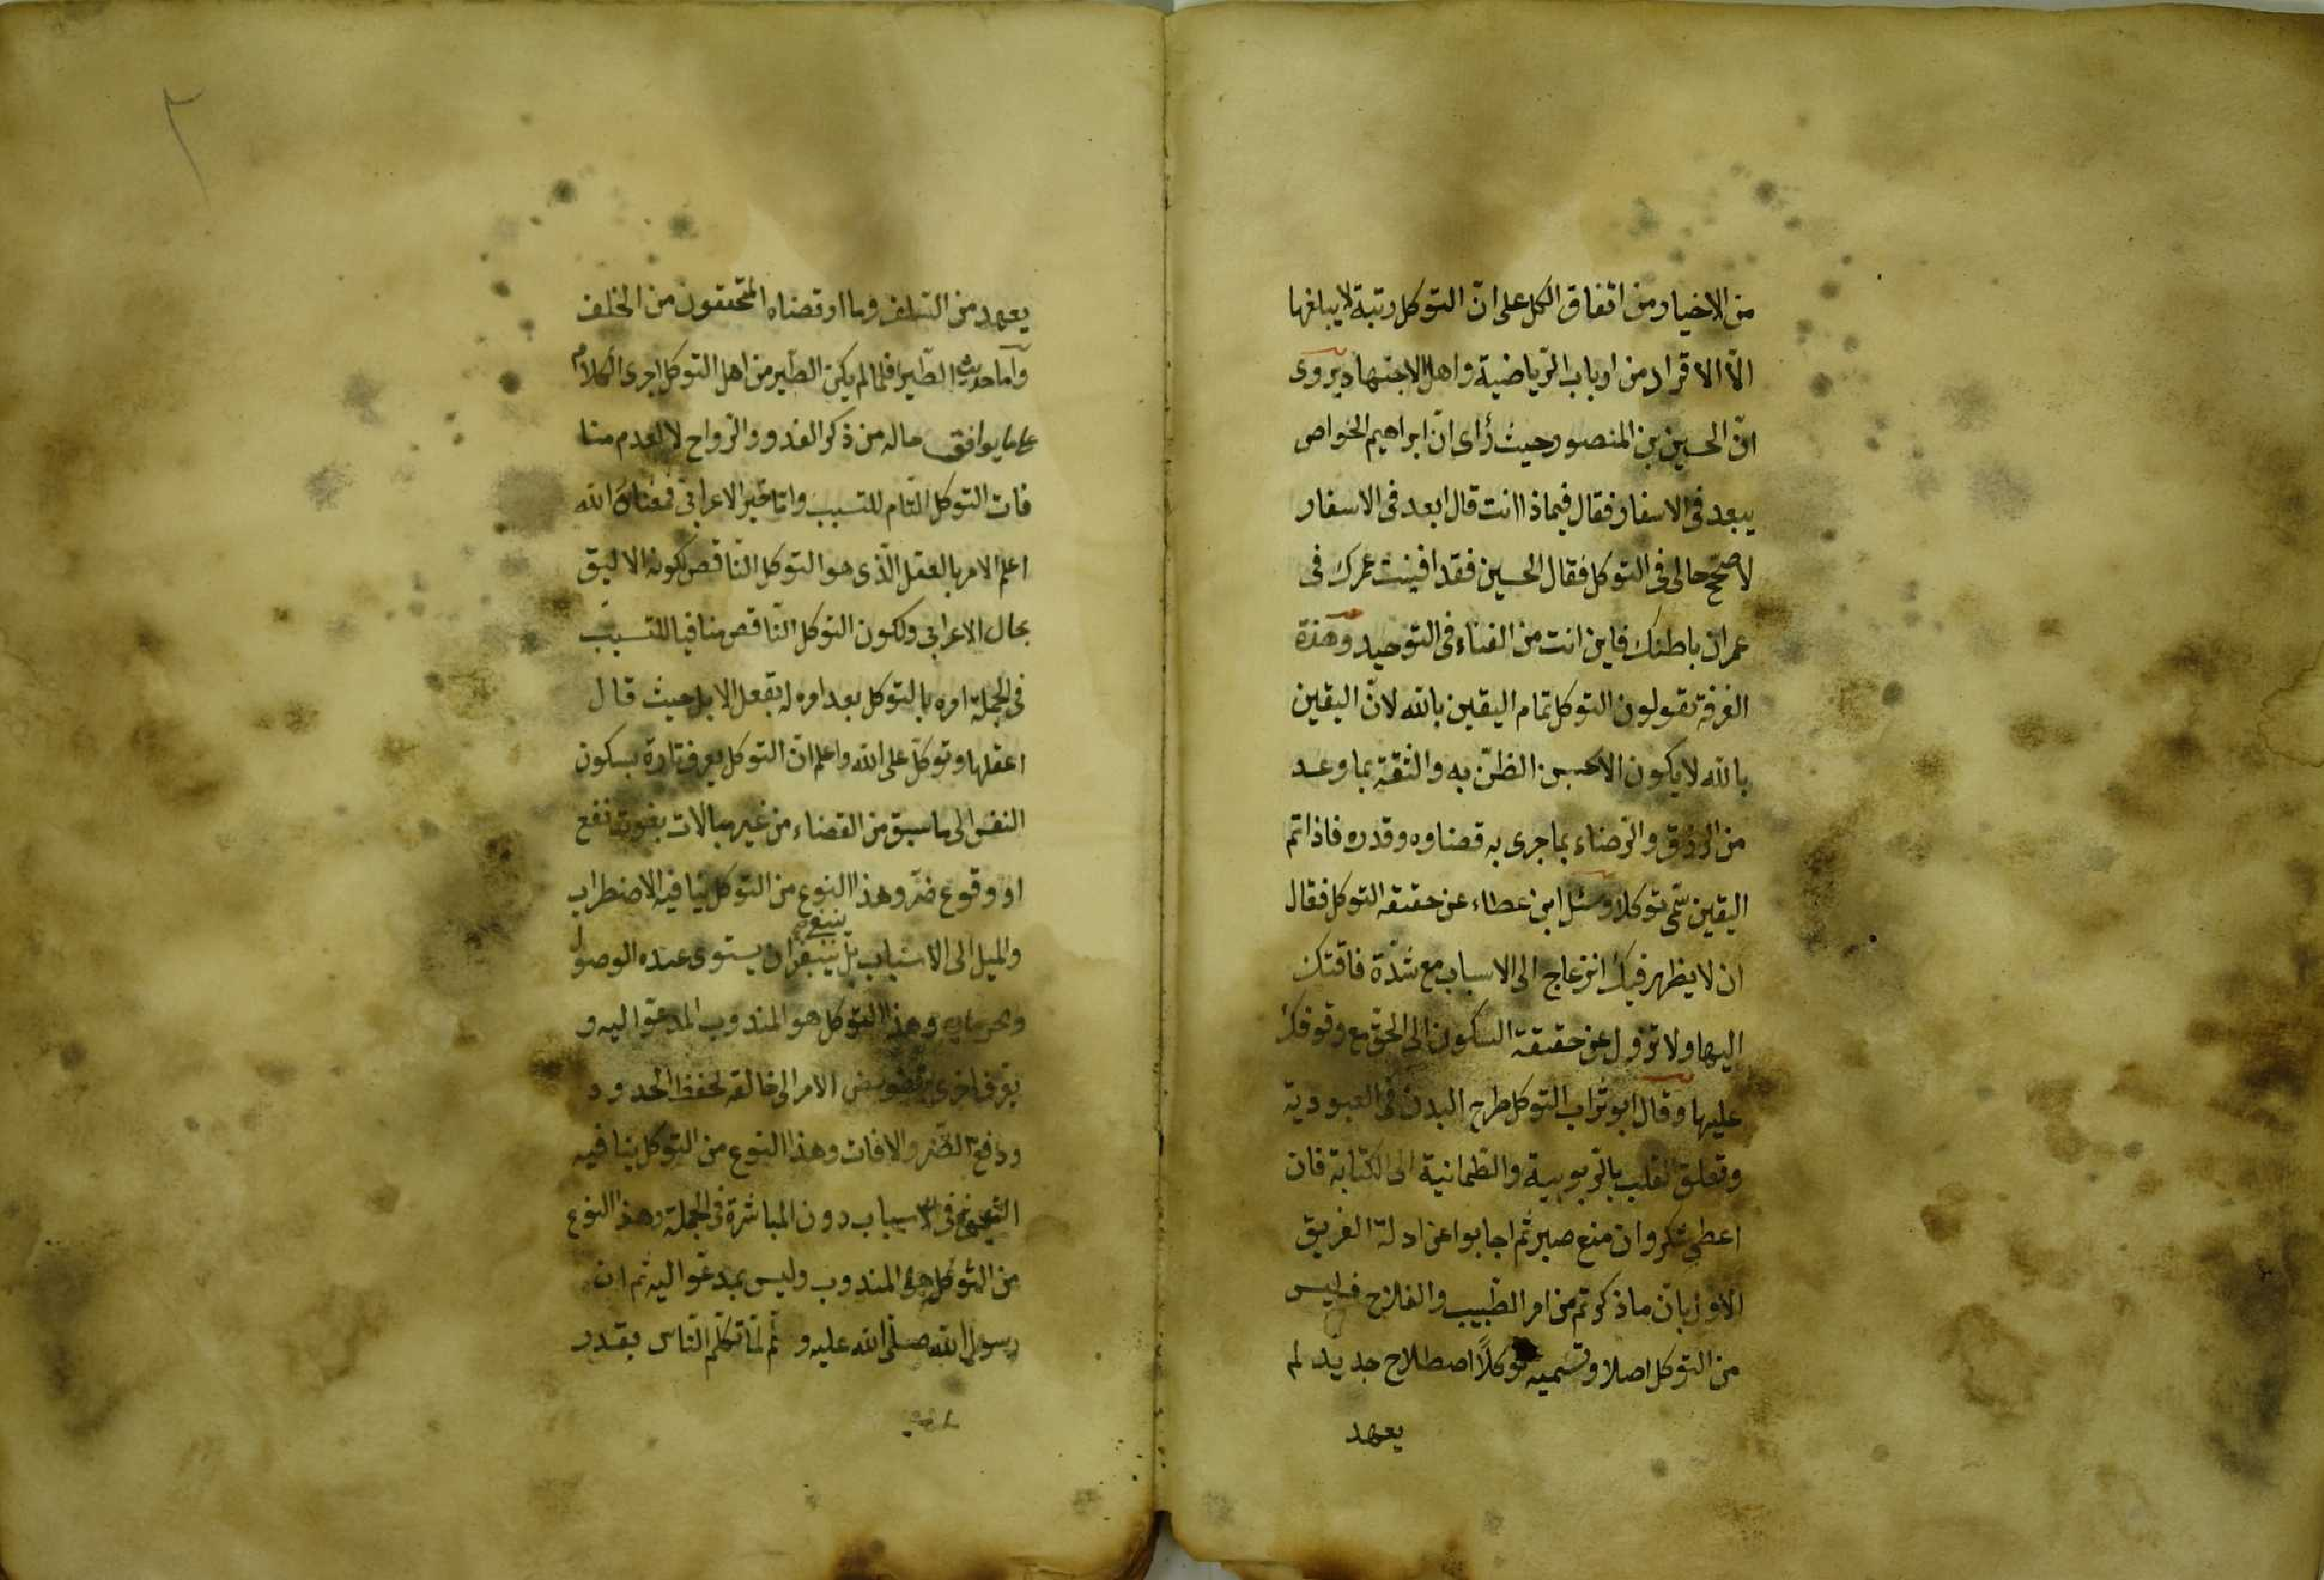 من الاخيار من اتفاق الكل على انّ التوكل رتبة لا يبلغها
الّا الافراد من ارباب الرّياضية واهل الاجتهاد يروى
انّ الحسين بن المنصور حيث رأى انّ ابراهيم الخواص
يبعد فى الاسفار فقال فيماذا انت قال ابعد فى الاسفار
لاصحّح حالى فى التوكل فقال الحسين فقد افنيت عمرك فى
عمران باطنك فاين انت من الفناء فى التوحيد وهذة
الفرقة تقولون التوكل تمام اليقين بالله لانّ اليقين
بالله لا يكون الا بحسن الظنّ به والثقة بما وعد
من الرزق والرّضاء بما جرى به قضاوه وقدره فاذا تم
اليقين سمّى توكلا وسئل ابن عطاء عن حقيقة التوكل فقال
ان لا يظهر فيك انزعاج الى الاسباب مع شدّة فاقتك
اليها ولا تزول عن حقيقة السكون الى الحقّ مع وقوفك
عليها وقال ابو تراب التوكل طرح البدن فى العبودية
وتعلق القلب بالرّبوبية والطمانية الى الكتابة فان
اعطى شكر وان منع صبر ثم اجابوا عن ادلة الفريق
الاوّل بانّ ما ذكرتم من امر الطّبيب والفلاح فليس
من التوكل اصلا وتسميه توكلاً اصطلاح جديد لم
يعهد
يعهد من السّلف وما ارتضاه المتحققون من الخلف
وامّا حديث الطّير فلما لم يكن الطّير من اهل التوكل اجرى الكلام
على ما يوافق حاله من ذكر الغدو والرّواح لا لعدم منا
فات التوكل التّام للتسبب وامّا خبر الاعرابىّ فمعناه الله
اعلم الامر بالعقل الّذى هو التوكل النّاقص لكونه الاليق
بحال الاعرابى ولكون التوكل النّاقص منافيا للتسبّب
فى الجملة امره بالتوكل بعد امره له بعقل الابل حيث قال
اعقلها وتوكلّ على الله واعلم انّ التوكل يعرف تارة بسكون
النفس الى ما سبق من القضاء من غير مبالات بفوت نفع
او وقوع ضرّ وهذا النوع من التوكل ينافيه الاضطراب
ينبغى
والميل الى الاسباب بل ينبغى ان يستوى عنده الوصول
وحرمانه وهذا التوكل هو المندوب المدعوّ اليه و
يعرف اخرى بتفويض الامر الى خالقه لحفظ الحدود
ودفع الضّر والافات وهذا النوع من التوكل ينافيه
فى الاسباب دون المباشرة فى الجملة وهذا النوع
من التوكل هو المندوب وليس بمدعوّ اليه ثم ان
رسول الله صلّى الله عليه و ثم لمّا تكلّم النّاس بقدر